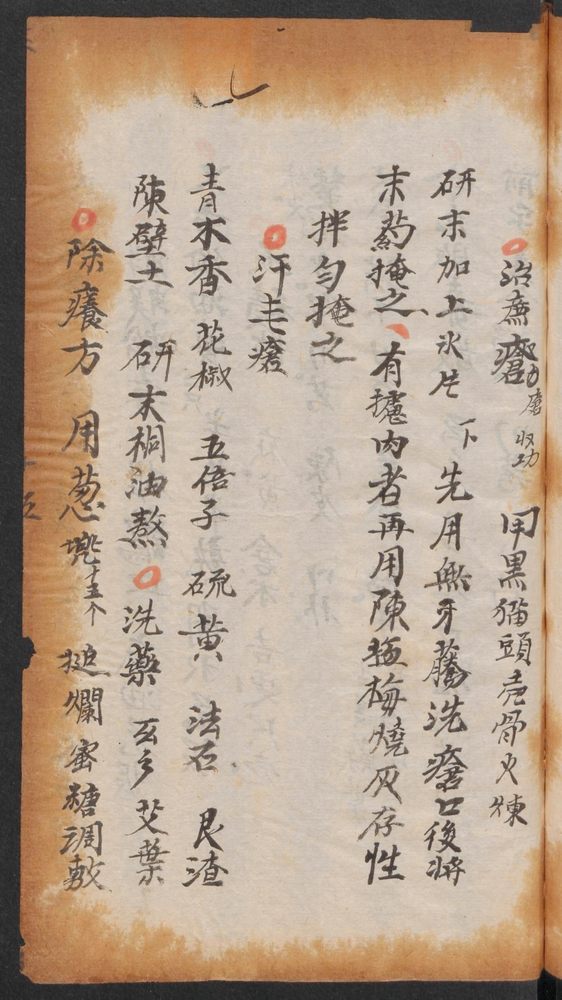 治廉瘡 收功 用黑猫頭壳骨火煉
研末加上氷片 先用無牙藤洗瘡口後將
末葯掩之 有㧯肉者再用陳極梅燒灰存性
拌匀掩之
汗毛瘡
青木香 花椒 五倍子 硫黄 法石 艮渣
陳壁土 研末桐油熬 洗藥 艾葉
除癢方 用葱 十五个 搥爛蜜糖調敷